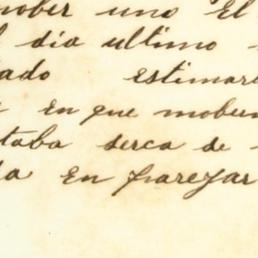 mober uno El
dia ultimo
ado estimare
en que mober
taba serca de
a en parezar